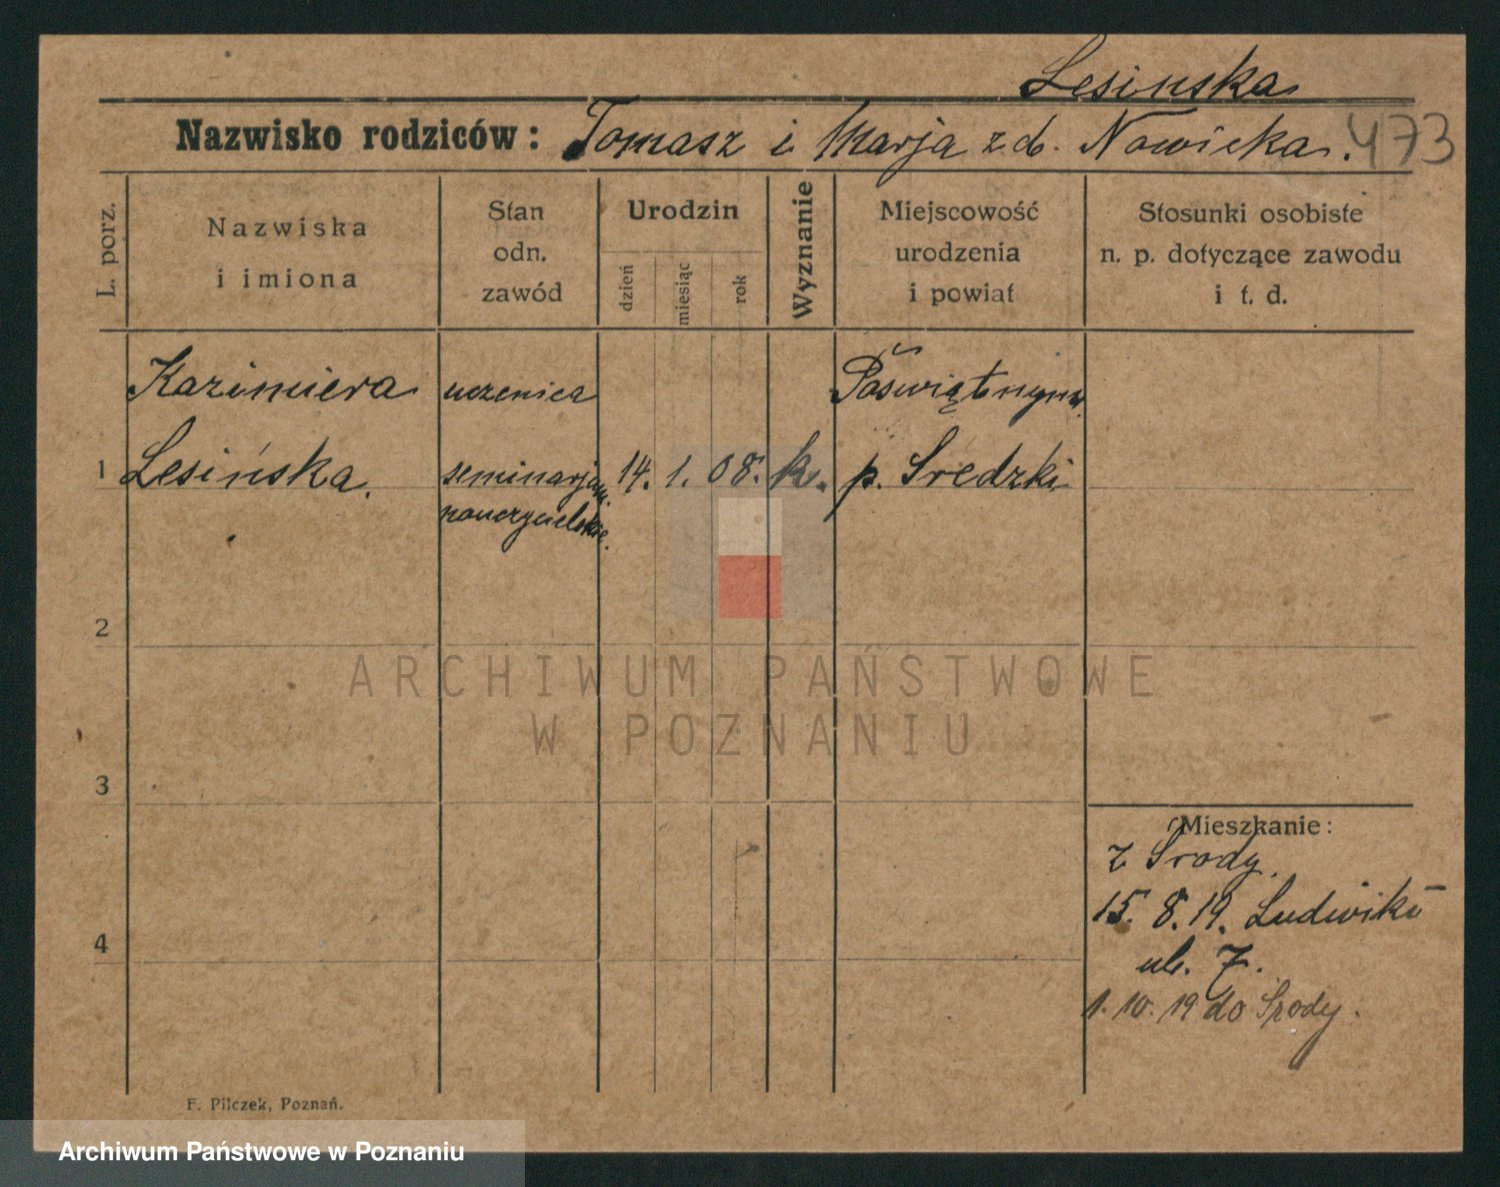 Lesinska
Nazwisko rodziców: Tomasz i Marja z d. Nowicka. 473
L. porz.
Nazwiska
i imiona
Stan
odn.
zawód
Urodzin
dzień
miesiąc
rok
Wyznanie
Miejscowość
urodzenia
i powiat
Stosunki osobiste
n. p. dotyczące zawodu
i t. d.
Kazimiera uczenica
1 Lesińska. seminarjum 14. 1. 08. k. p. Sredzki
2
ARCHIWUM PAŃSTWOWE
W POZNANIU
3
Mieszkanie:
z Środy.
15. 8. 19. Ludwiki
4
ul. 7.
1. 10. 19 do Środy.
F. Pilczek, Poznań.
Archiwum Państwowe w Poznaniu